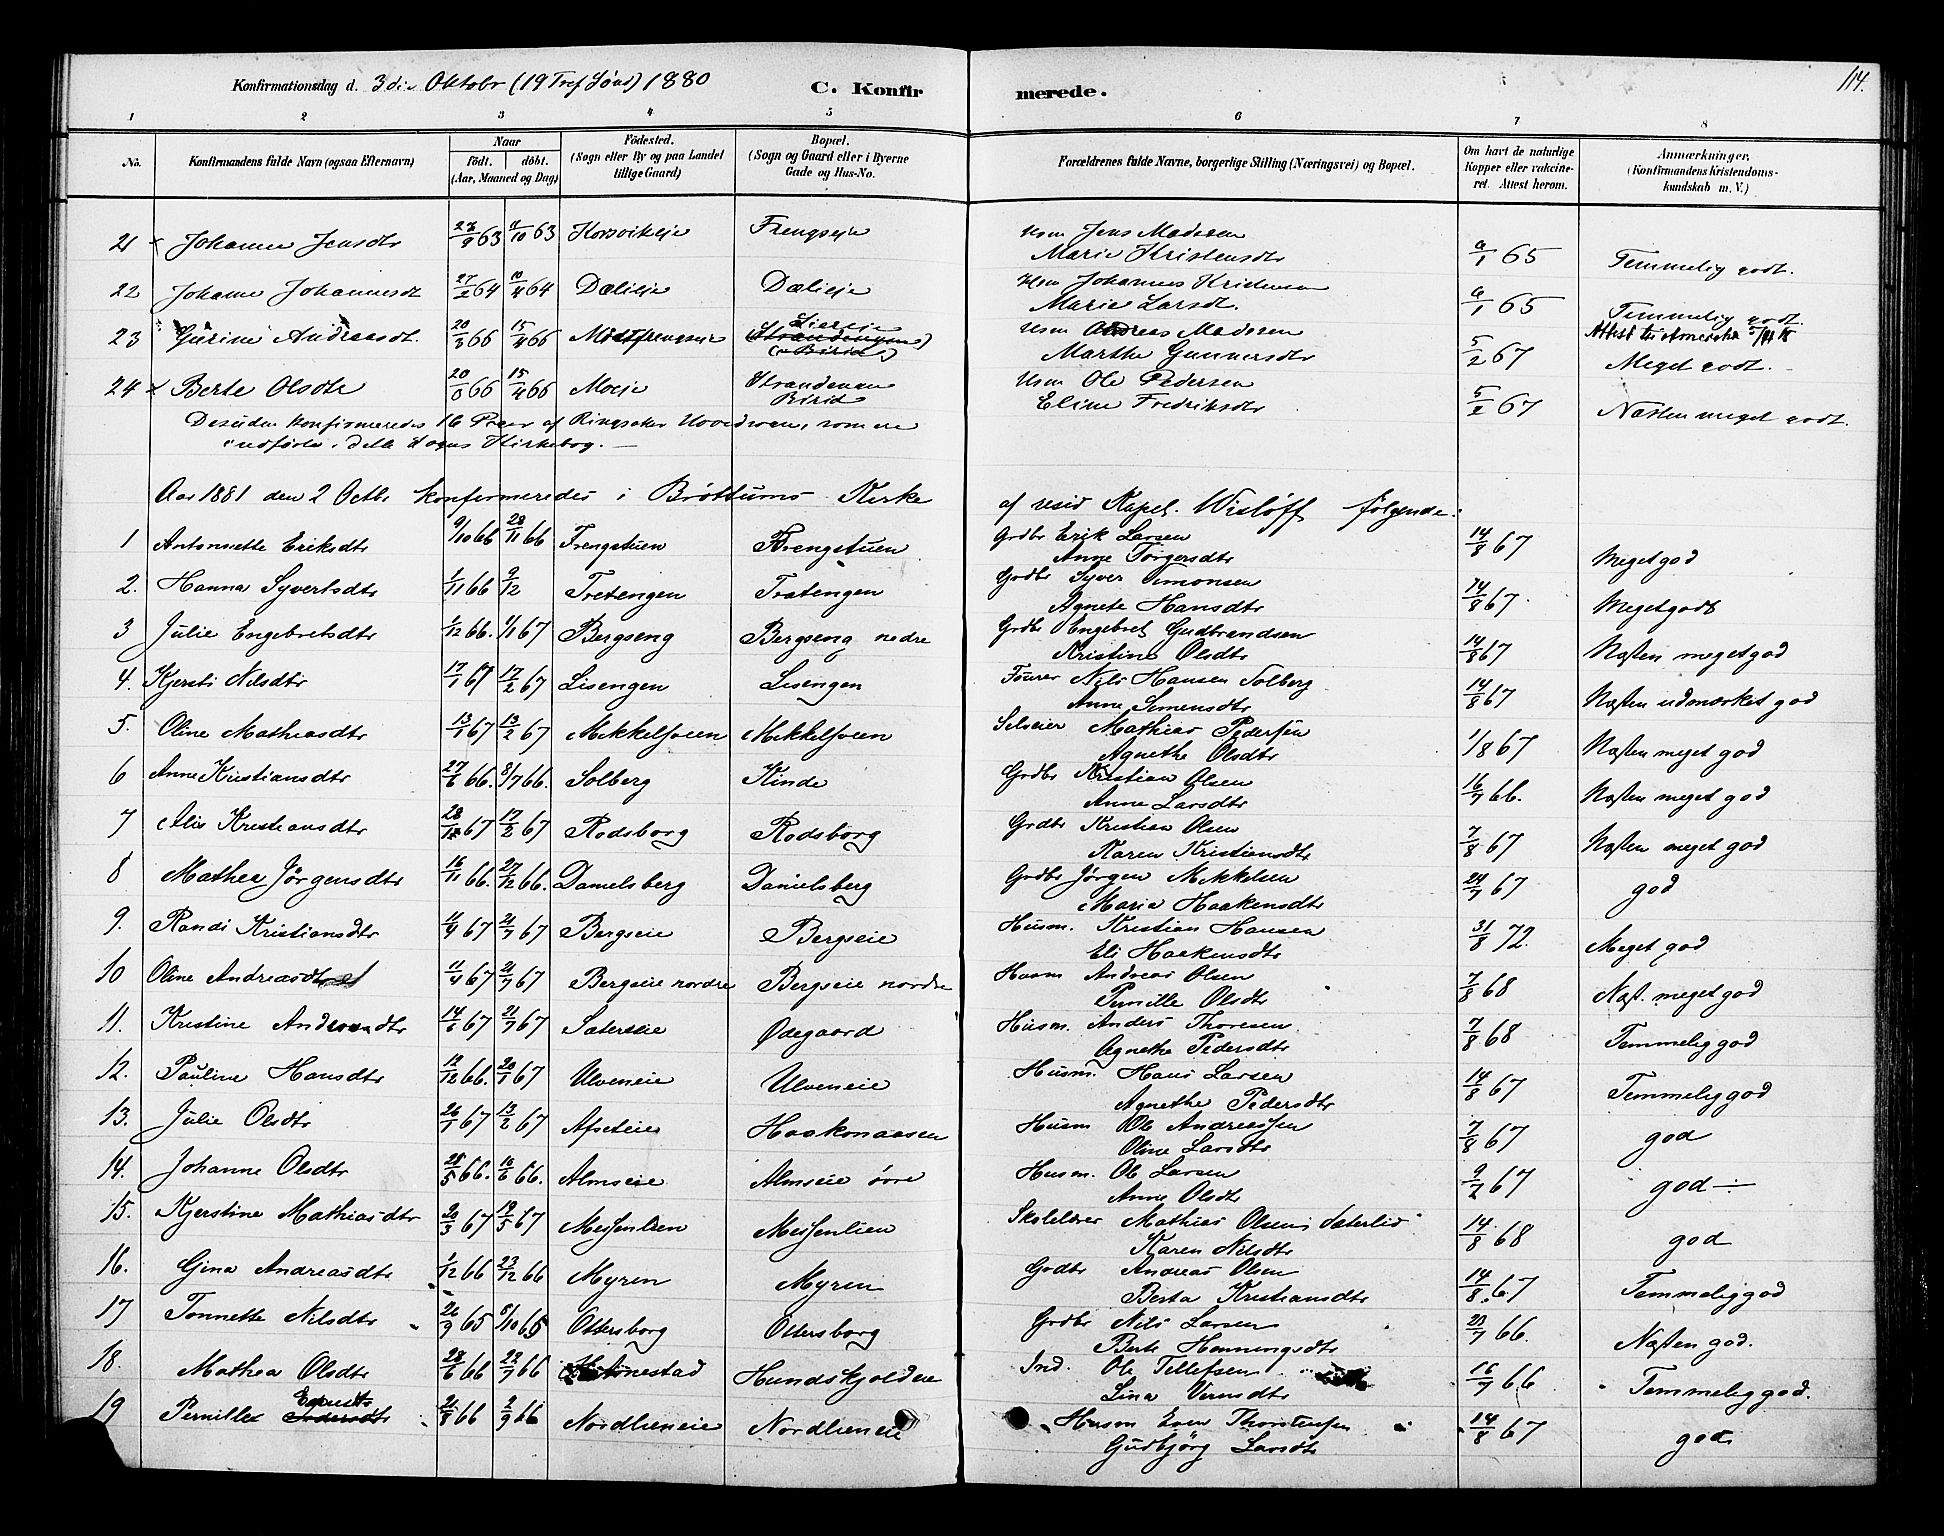 Konfirmationsdag d. 3die Oktobr (19 Tref Sönd) 1880 C. Konfirmerede. 114.
1 2 3 4 5 6 7 8
No. Konfirmandens fulde Navn (ogsaa Efternavn) Naar födt. döbt. (Aar, Maaned og Dag) Födested. (Sogn eller By og paa Landet tillige Gaard) Bopæl. (Sogn og Gaard eller i Byerne Gade og Hus-No. Forældrenes fulde Navne, borgerlige Stilling (Næringsvei) og Bopæl. Om havt de naturlige Kopper eller vakcineret. Attest herom. Anmærkninger, (Konfirmandens Kristendomskundskab m. V.)
21 Johanne Jensdtr 63 63 Korsvikeje Frengseje Hsm Jens Madssen
Marie Kristensdtr 6/1 65 Temmelig godt.
22 Johane Johannesdt 27/2 64 10/4 64 Dælieje Dælieje Hsm Johannes
Marie Larsdt. 6/1 65 Temmelig godt.
23 Gurine Andreasdt. 20/3 66 15/4 66 Hsm Andreas Madssen
Marthe Gunnersdtr 5/2 67 Meget godt.
24 Berte Olsdtr 20/3 66 15/4 66 Moeje Strandengen Birid Hsm Ole Pedersen
Eline Fredriksdtr 5/2 67 Næsten meget godt.
Desuden konfirmeredes 16 Piger af Ringsaker Hovedsogn, som ere
indførte i dette Sogns Kirkebog.
Aar 1881 den 2 Octbr konfirmeredes i Brøttums Kirke af resid Kapel. Wisløff følgende:
1 Antonette Eriksdtr 9/10 66 28/11 66 Frengstuen Frengstuen Grdbr Erik Larsen
Anne Torgersdtr 14/8 67 Meget god
2. Hanna Syvertsdtr 1/11 66 9/12 Tretengen Tratengen Grdbr Syver Simonsen
Agnete Hansdtr 14/8 67. Meget godt
3 Julie Engebretsdtr 1/12 66. 1/1 67 Bergseng Bergseng nedre Grdbr Engebret Gudbrandsen
Kristine Olsdtr 14/8 67 Næsten meget god
4. Kjersti Nilsdtr 17/1 67 17/2 67 Lisengen Lisengen Nils Hansen Solberg
Anne Simensdtr 14/8 67 Næsten udmærket god
5. Oline Mathiasdtr 13/1 67 13/2 67 Mikkelsveen Mikkelsveen Selveier Mathias Pedersen
Agnethe Olsdtr 1/8 67 Næsten meget god
6 Anne Kristiansdtr 27/6 66. 8/7 66. Solberg Kinde Grdbr Kristian Olsen
Anne Larsdtr 16/7 66. Næsten meget god
7 Alis Kristiansdtr 67 17/2 67 Rodsborg Rodsborg Grdbr Kristian Olsen
Karen Kristiansdtr 7/8 67 Næsten meget god
8 Mathea Jörgensdtr 16/11 66. 27/12 66. Danielsberg Danielsberg Grdbr Jörgen Mikkelsen
Maria Haakensdtr 24/7 67 god
9. Randi Kristiansdtr 11/4 67 21/7 67 Bergseie Bergseie Husm. Kristian Hansen
Eli Haakensdtr 31/8 72. Meget god
10 Oline Andreasdtr 11/4 67 21/7 67 Bergseie nordre Bergseie nordre Husm Andreas Olsen
Pernille Olsdtr 7/8 68 Næst. meget god
11. Kristine 14/6 67 21/7 67 Saterseie Ødegaard Husm. Anders Thoresen.
Agnethe Pedersdtr 7/8 68 Temmelig god
12. Pauline Hansdtr 12/12 66. 20/1 67 Ulveneie Ulveneie Husm. Hans Larsen
Agnethe Pedersdtr 14/8 67 Temmelig god
13. Julie Olsdtr 26/1 67 13/2 67 Afseteie Haakonaasen Husm Ole Andreassen
Oline Larsdtr 7/8 67 god
14. Johanne Olsdtr 28/5 66. 16/6 66. Almseie Almseie övre Husm. Ole Larsen
Anne Olsdtr 9/7 67 god
15. Kjerstine Mathiasdtr 20/3 67 19/5 67 Messenlien Messenlien Skolelærer Mathias Olsen Sæterlid
Karen Nilsdtr 14/8 68 god
16. Gina Andreasdtr 1/12 66 23/12 66 Myren Myren Grdbr Andreas Olsen
Berta Kristiansdtr 14/8 67 Temmelig god
17 Tonnette Nilsdtr 26/9 65 8/10 65 Ottersborg Ottersborg Grdbr Nils Larsen
Berte Henningsdtr 23/7 66. Næsten god.
18. Mathea Olsdtr 28/6 66 22/7 66 Hundskjoldeie Ind. Ole Tellefsen
Lina 16/7 66 Temmelig god.
19 Pernille Evensdtr 21/8 66 2/9 66 Nordlieneie Nordlieneie Husm Even Thorstensen
Gudbjörg Larsdtr 14/8 67 god